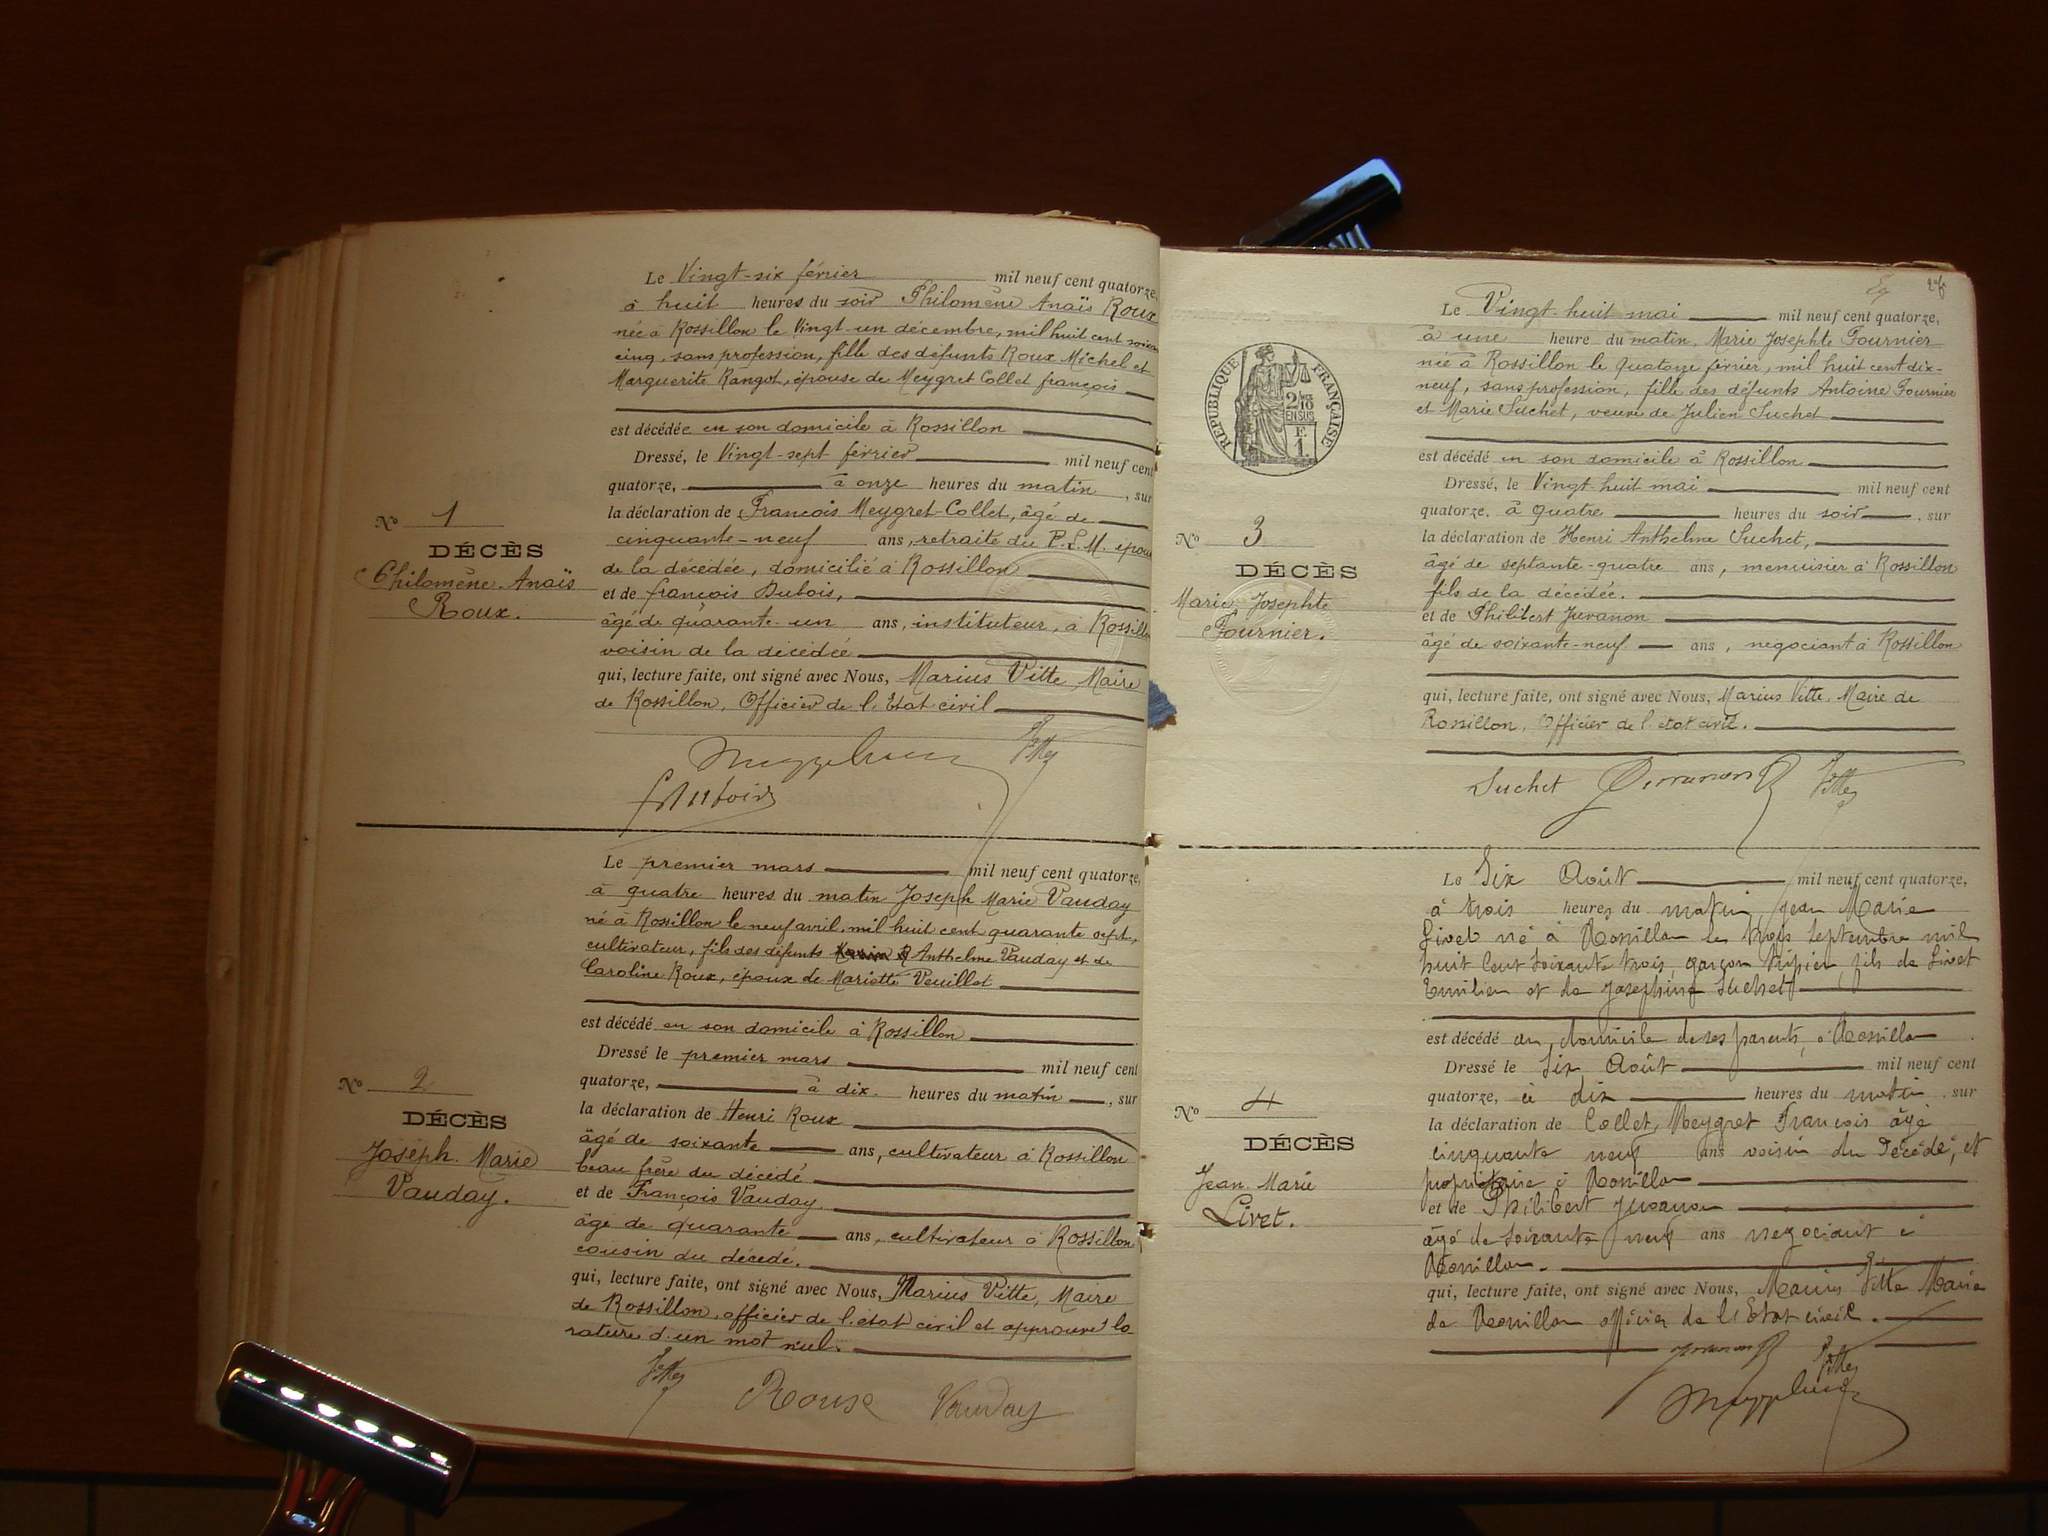 Le Vingt-six février mil neuf cent quatorze,
à huit heures du soir Philomène Anaïs Roux
née à Rossillon le Vingt-un décembre, mil huit cent soixan
cinq, sans profession, fille des défunts Roux Michel et
Marguerite Rangot, épouse de Meygret Collet françois
est décédée en son domicile à Rossillon
Dressé, le Vingt-sept février mil neuf cent
quatorze, à onze heures du matin, sur
la déclaration de François Meygret-Collet, âgé de
cinquante-neuf ans, retraité du P.L.M. épou
de la décédée, domicilié à Rossillon
et de françois Dubois,
âgé de quarante-un ans, instituteur, à Rossill
voisin de la décédée
qui, lecture faite, ont signé avec Nous, Marius Vitte, Maire
de Rossillon, Officier de l'Etat civil
No 1
DÉCÈS
Philomène-Anaïs
Roux.
Le premier mars mil neuf cent quatorze,
à quatre heures du matin Joseph Marie Vauday
né à Rossillon le neuf avril, mil huit cent quarante sept,
cultivateur, fils des défunts Anthelme Vauday et de
Caroline Roux, époux de Mariette Veuillet
est décédé en son domicile à Rossillon
Dressé le premier mars mil neuf cent
quatorze, à dix. heures du matin, sur
la déclaration de Henri Roux
âgé de soixante ans, cultivateur à Rossillon
beau frère du décédé
et de François Vauday
âgé de quarante ans, cultivateur à Rossillon
cousin du décédé.
qui, lecture faite, ont signé avec Nous, Marius Vitte, Maire
de Rossillon, officier de l'état civil et approuvé la
rature d'un mot nul.
Vitte
Roux Vauday
No 2
DÉCÈS
Joseph. Marie
Vauday.
Le Vingt-huit mai mil neuf cent quatorze,
à une heure du matin, Marie Josephte Fournier
née à Rossillon le quatorze février, mil huit cent dix-
neuf, sans profession, fille des défunts Antoine Fournier
et Marie Suchet, veuve de Julien Suchet
est décédé en son domicile à Rossillon
Dressé, le Vingt-huit mai mil neuf cent
quatorze, à quatre heures du soir, sur
la déclaration de Henri Anthelme Suchet,
âgé de septante-quatre ans, menuisier à Rossillon
fils de la décédée.
et de Philibert Juvanon
âgé de soixante-neuf ans, négociant à Rossillon
qui, lecture faite, ont signé avec Nous, Marius Vitte, Maire de
Rossillon, Officier de l'état civil.
Suchet Juvanon Vitte
RÉPUBLIQUE FRANÇAISE
2/10
EN SUS
F.
1.
No 3
DÉCÈS
Marie Josephte
Fournier.
Le Six Août mil neuf cent quatorze,
à trois heures du matin, Jean Marie
Livet né à Rossillon le trois Septembre mil
huit cent soixante trois, garçon tripier, fils de Livet
Emilien et de Josephine Suchet
est décédé au domicile de ses parents, à Rossillon
Dressé le Six Août mil neuf cent
quatorze, à dix heures du matin, sur
la déclaration de Collet, Meygret François âgé
cinquante neuf ans voisin du Décédé, et
propriétaire à Rossillon
et de Philibert Juvanon
âgé de soixante neuf ans négociant à
Rossillon.
qui, lecture faite, ont signé avec Nous, Marius Vitte Maire
de Rossillon officier de l'Etat civil.
Juvanon Vitte
No 4
DÉCÈS
Jean. Marie
Livet.